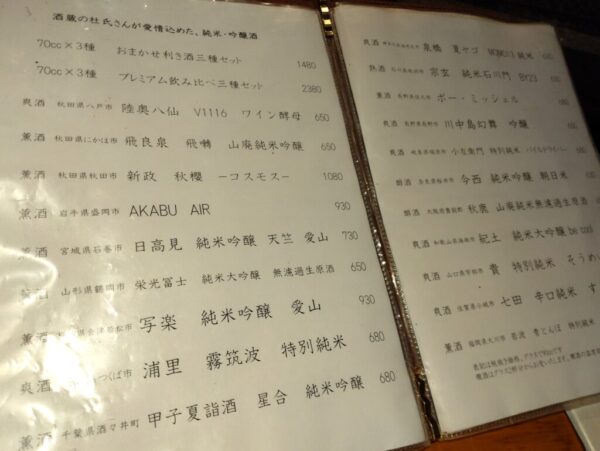 酒蔵の杜氏さんが愛情込めた、純米・吟醸酒
70cc×3種 おまかせ利き酒三種セット 1480
70cc×3種 プレミアム飲み比べ三種セット 2380
爽酒 秋田県八戸市 陸奥八仙 V1116 ワイン酵母 650
薫酒 秋田県にかほ市 飛良泉 飛囀 山廃純米吟醸 650
薫酒 秋田県秋田市 新政 秋櫻 ーコスモスー 1080
薫酒 岩手県盛岡市 AKABU AIR 930
薫酒 宮城県石巻市 日高見 純米吟醸 天竺 愛山 730
山形県鶴岡市 栄光冨士 純米大吟醸 無濾過生原酒 650
薫酒 会津若松市 写楽 純米吟醸 愛山 930
爽酒 つくば市 浦里 霧筑波 特別純米 680
薫酒 千葉県酒々井町 甲子夏詣酒 星合 純米吟醸 680
爽酒 泉橋 夏ヤゴ 純米
熟酒 宗玄 純米石川門 BY23
薫酒 ボー・ミッシェル
爽酒 川中島幻舞 吟醸
爽酒 小左衛門 特別純米
醇酒 今西 純米吟醸 朝日米
醇酒 秋鹿 山廃純米無濾過生原酒
爽酒 和歌山県海南市 紀土 純米大吟醸 be cool
爽酒 山口県宇部市 貴 特別純米
爽酒 佐賀県小城市 七田 辛口純米
薫酒 福岡県大川市 若波 青とんぼ 特別純米